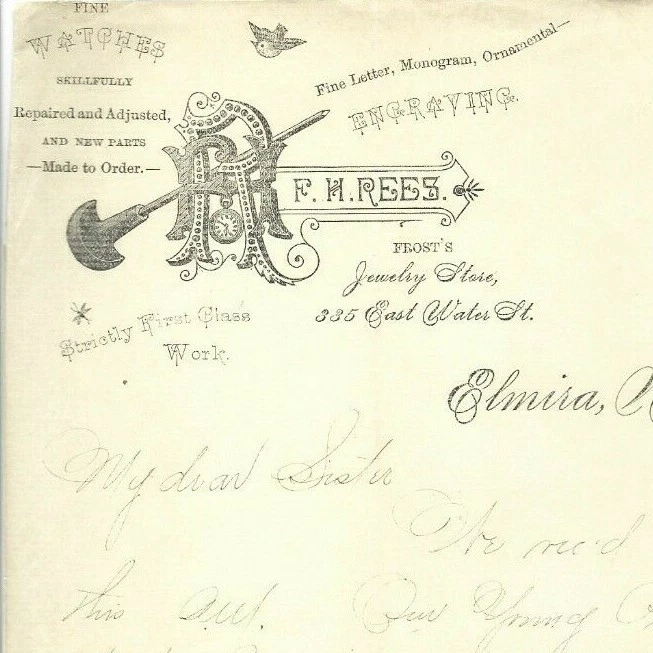 FINE
WATCHES
SKILLFULLY
Repaired and Adjusted,
AND NEW PARTS
—Made to Order.—
Fine Letter, Monogram, Ornamental—
ENGRAVING.
F. H. REES.
FROST'S
Jewelry Store,
335 East Water St.
Strictly First Class
Work.
Elmira,
My dear Sister
We rec'd
this
Our Young